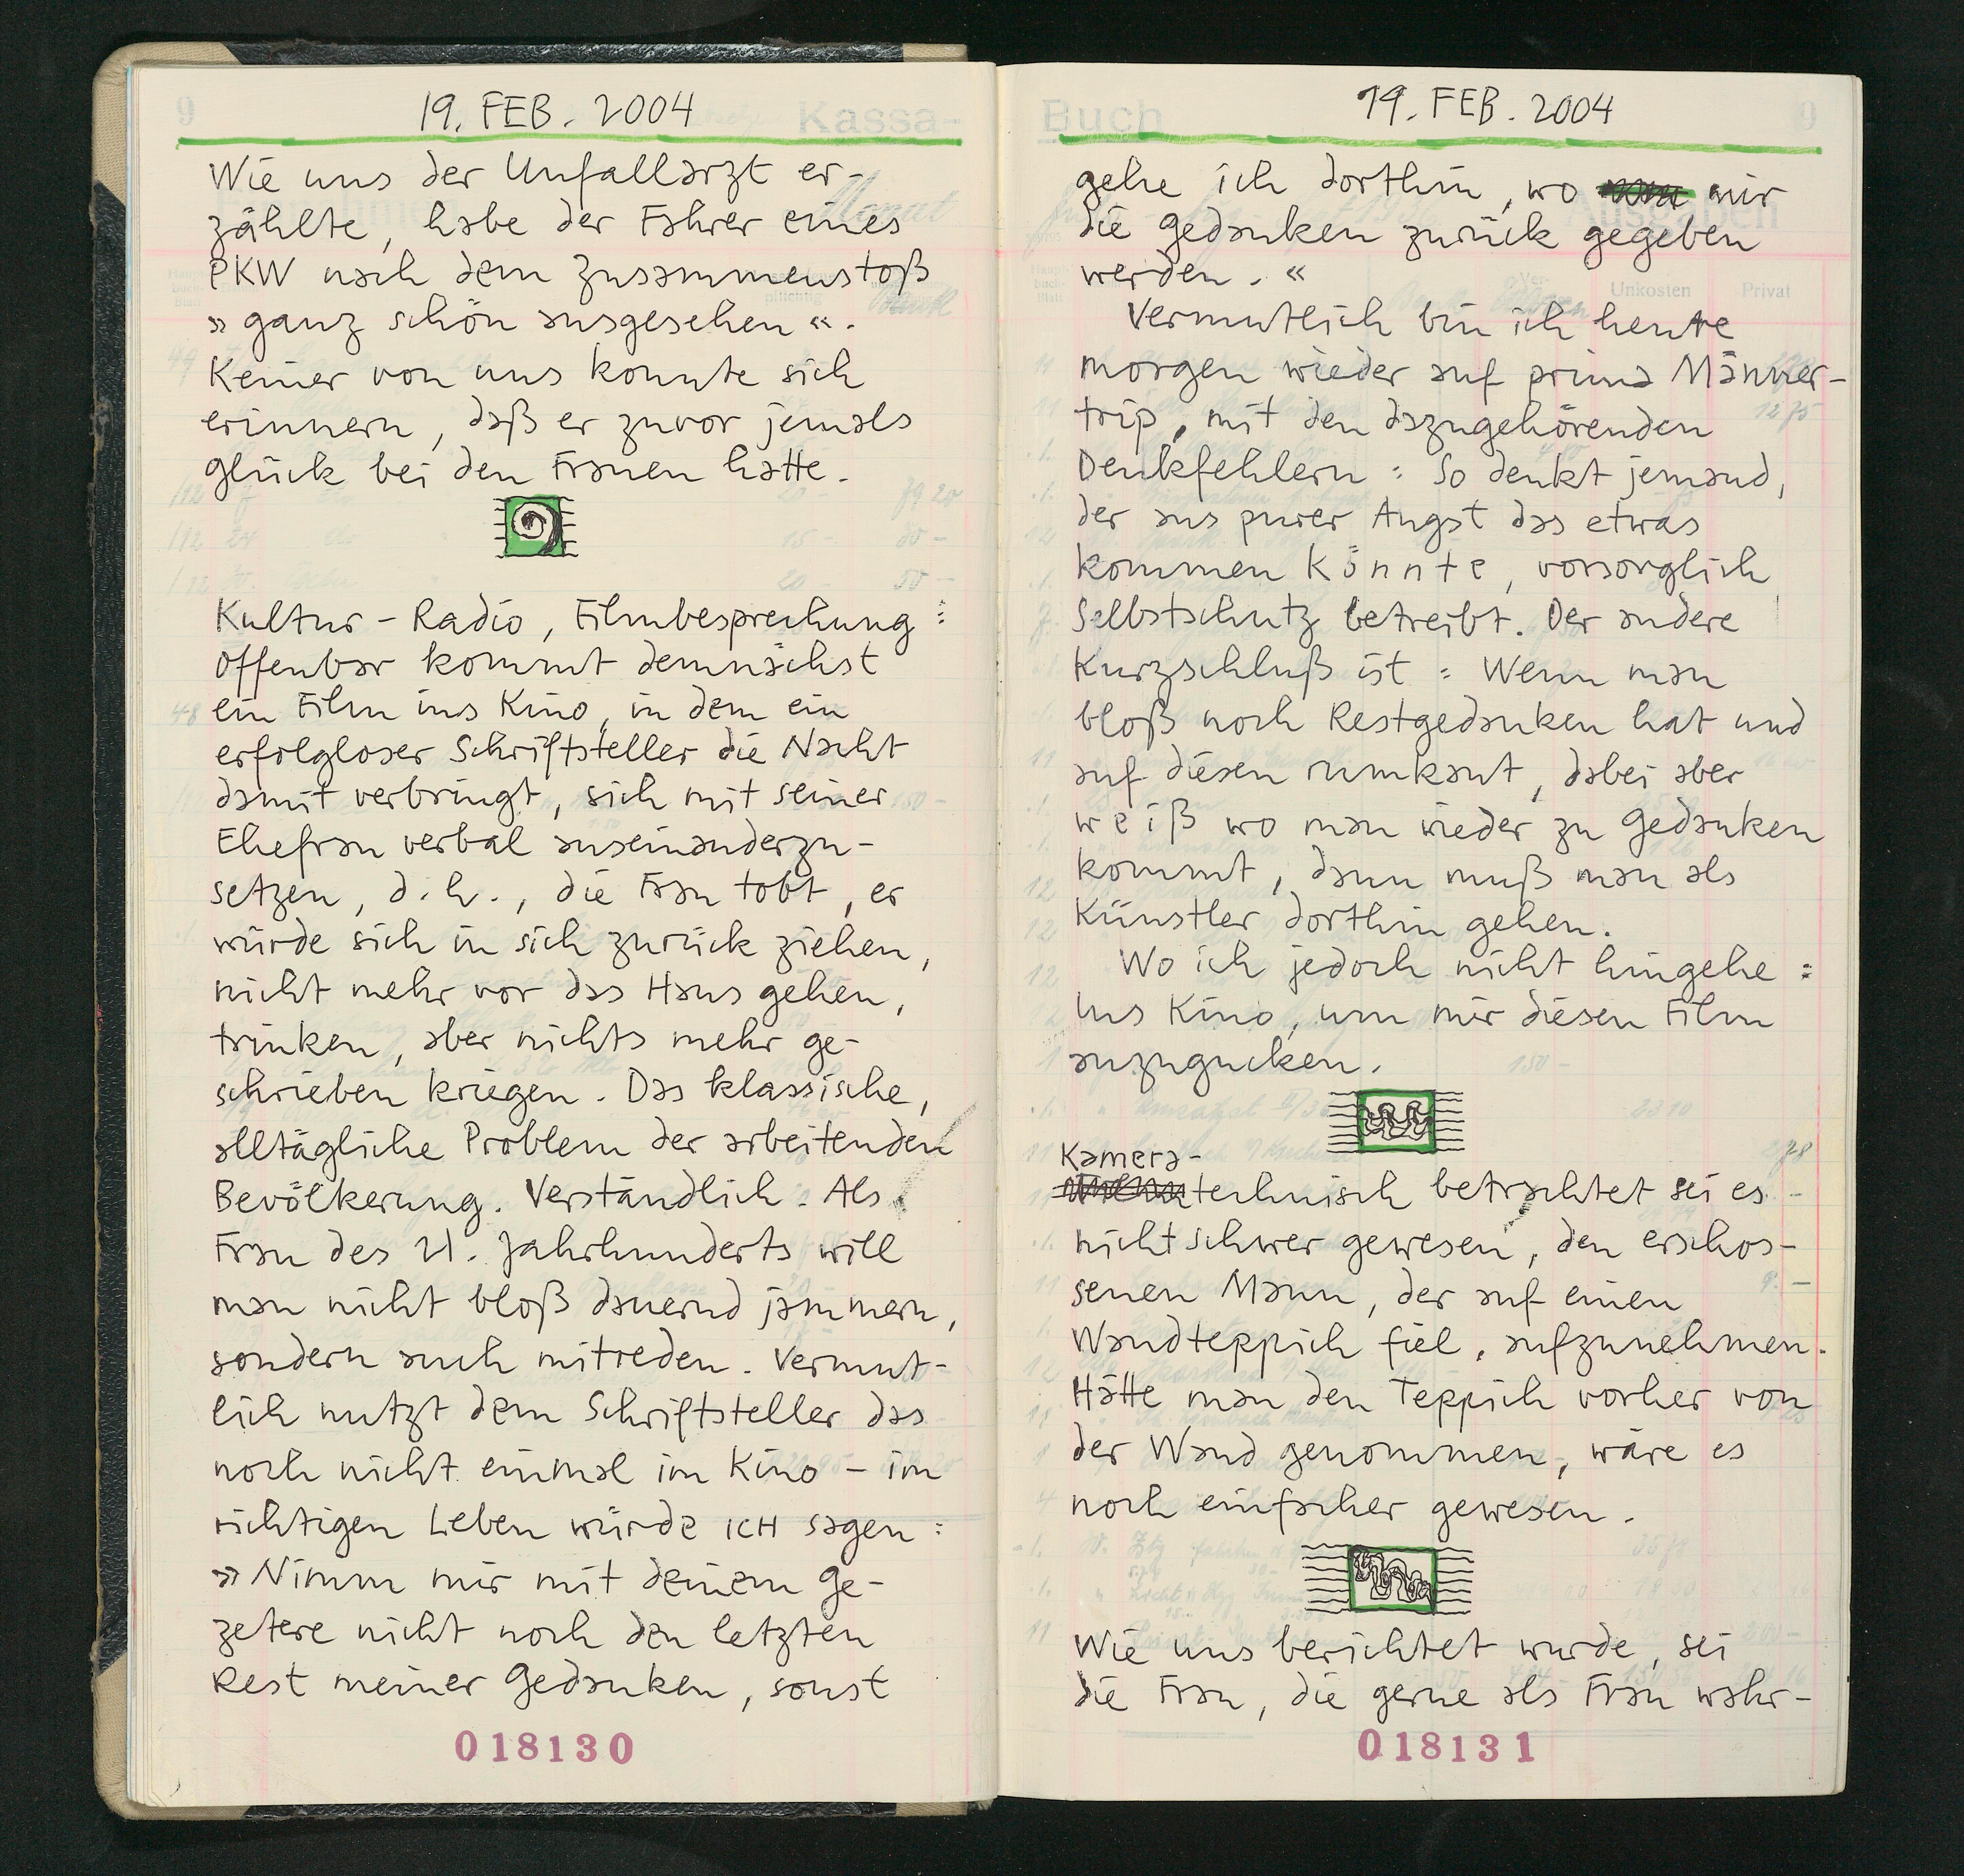 9
19. FEB. 2004
Kassa-
Wie uns der Unfallarzt er-
zählte, habe der Fahrer eines
PKW nach dem Zusammenstoß
»ganz schön ausgesehen«.
Keiner von uns konnte sich
erinnern, daß er zuvor jemals
Glück bei den Frauen hatte.
Kultur-Radio, Filmbesprechung:
Offenbar kommt demnächst
ein Film ins Kino, in dem ein
erfolgloser Schriftsteller die Nacht
damit verbringt, sich mit seiner
Ehefrau verbal auseinanderzu-
setzen, d.h., die Frau tobt, er
würde sich in sich zurück ziehen,
nicht mehr vor das Haus gehen,
trinken, aber nichts mehr ge-
schrieben kriegen. Das klassische,
alltägliche Problem der arbeitenden
Bevölkerung. Verständlich. Als
Frau des 21. Jahrhunderts will
man nicht bloß dauernd jammern,
sondern auch mitreden. Vermut-
lich nutzt dem Schriftsteller das
noch nicht einmal im Kino – im
richtigen Leben würde ICH sagen:
»Nimm mir mit deinem Ge-
zetere nicht noch den letzten
Rest meiner Gedanken, sonst
018130
Buch
19. FEB. 2004
9
gehe ich dorthin, wo mir
die Gedanken zurück gegeben
werden.«
Unkosten
Privat
Vermutlich bin ich heute
morgen wieder auf prima Männer-
trip, mit den dazugehörenden
Denkfehlern: So denkt jemand,
der aus purer Angst das etwas
kommen könnte, vorsorglich
Selbstschutz betreibt. Der andere
Kurzschluß ist: Wenn man
bloß noch Restgedanken hat und
auf diesen rumkaut, dabei aber
weiß wo man wieder zu Gedanken
kommt, dann muß man als
Künstler dorthin gehen.
Wo ich jedoch nicht hingehe:
Ins Kino, um mir diesen Film
anzugucken.
Kamera-
technisch betrachtet sei es
nicht schwer gewesen, den erschos-
senen Mann, der auf einen
Wandteppich fiel, aufzunehmen.
Hätte man den Teppich vorher von
der Wand genommen, wäre es
noch einfacher gewesen.
Wie uns berichtet wurde, sei
die Frau, die gerne als Frau wahr-
018131